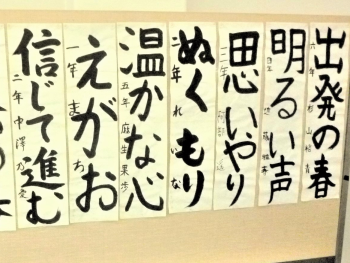 出発の春
六年
明るい声
思いやり
三年
ぬくもり
二年
温かな心
五年 麻生果歩
えがお
一年
信じて進む
二年 中澤乃愛